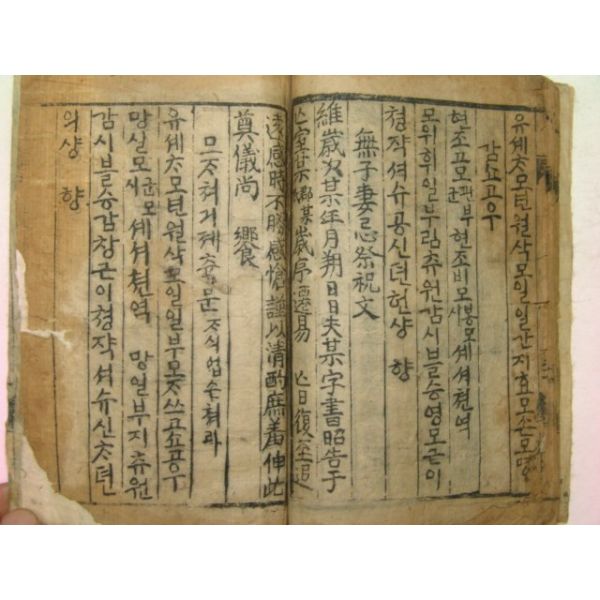 유세ᄎᆞ모년월삭모일일간지효모손모명
감쇼고우
현조고모관부군현조비모봉모시셰셔쳔역
모위휘일부림츄원감시블승영모근이
쳥쟉셔슈공신뎐헌샹 향
無子妻忌祭祝文
維歲次某年月朔日日夫某字書昭告于
亡室某鄕某 歲序遷易 亡日復至追
遠感時不勝感愴謹以清酌庶羞伸此
奠儀尚 饗
므ᄌᆞ쳐긔졔츅문ᄌᆞ식업손쳐라
유셰ᄎᆞ모년월삭모일일부모ᄌᆞ쓰고쇼고우
망실모시군모셰셔쳔역 망일부지츄원
감시블승감창근이쳥쟉셔슈신ᄎᆞ뎐
의샹 향